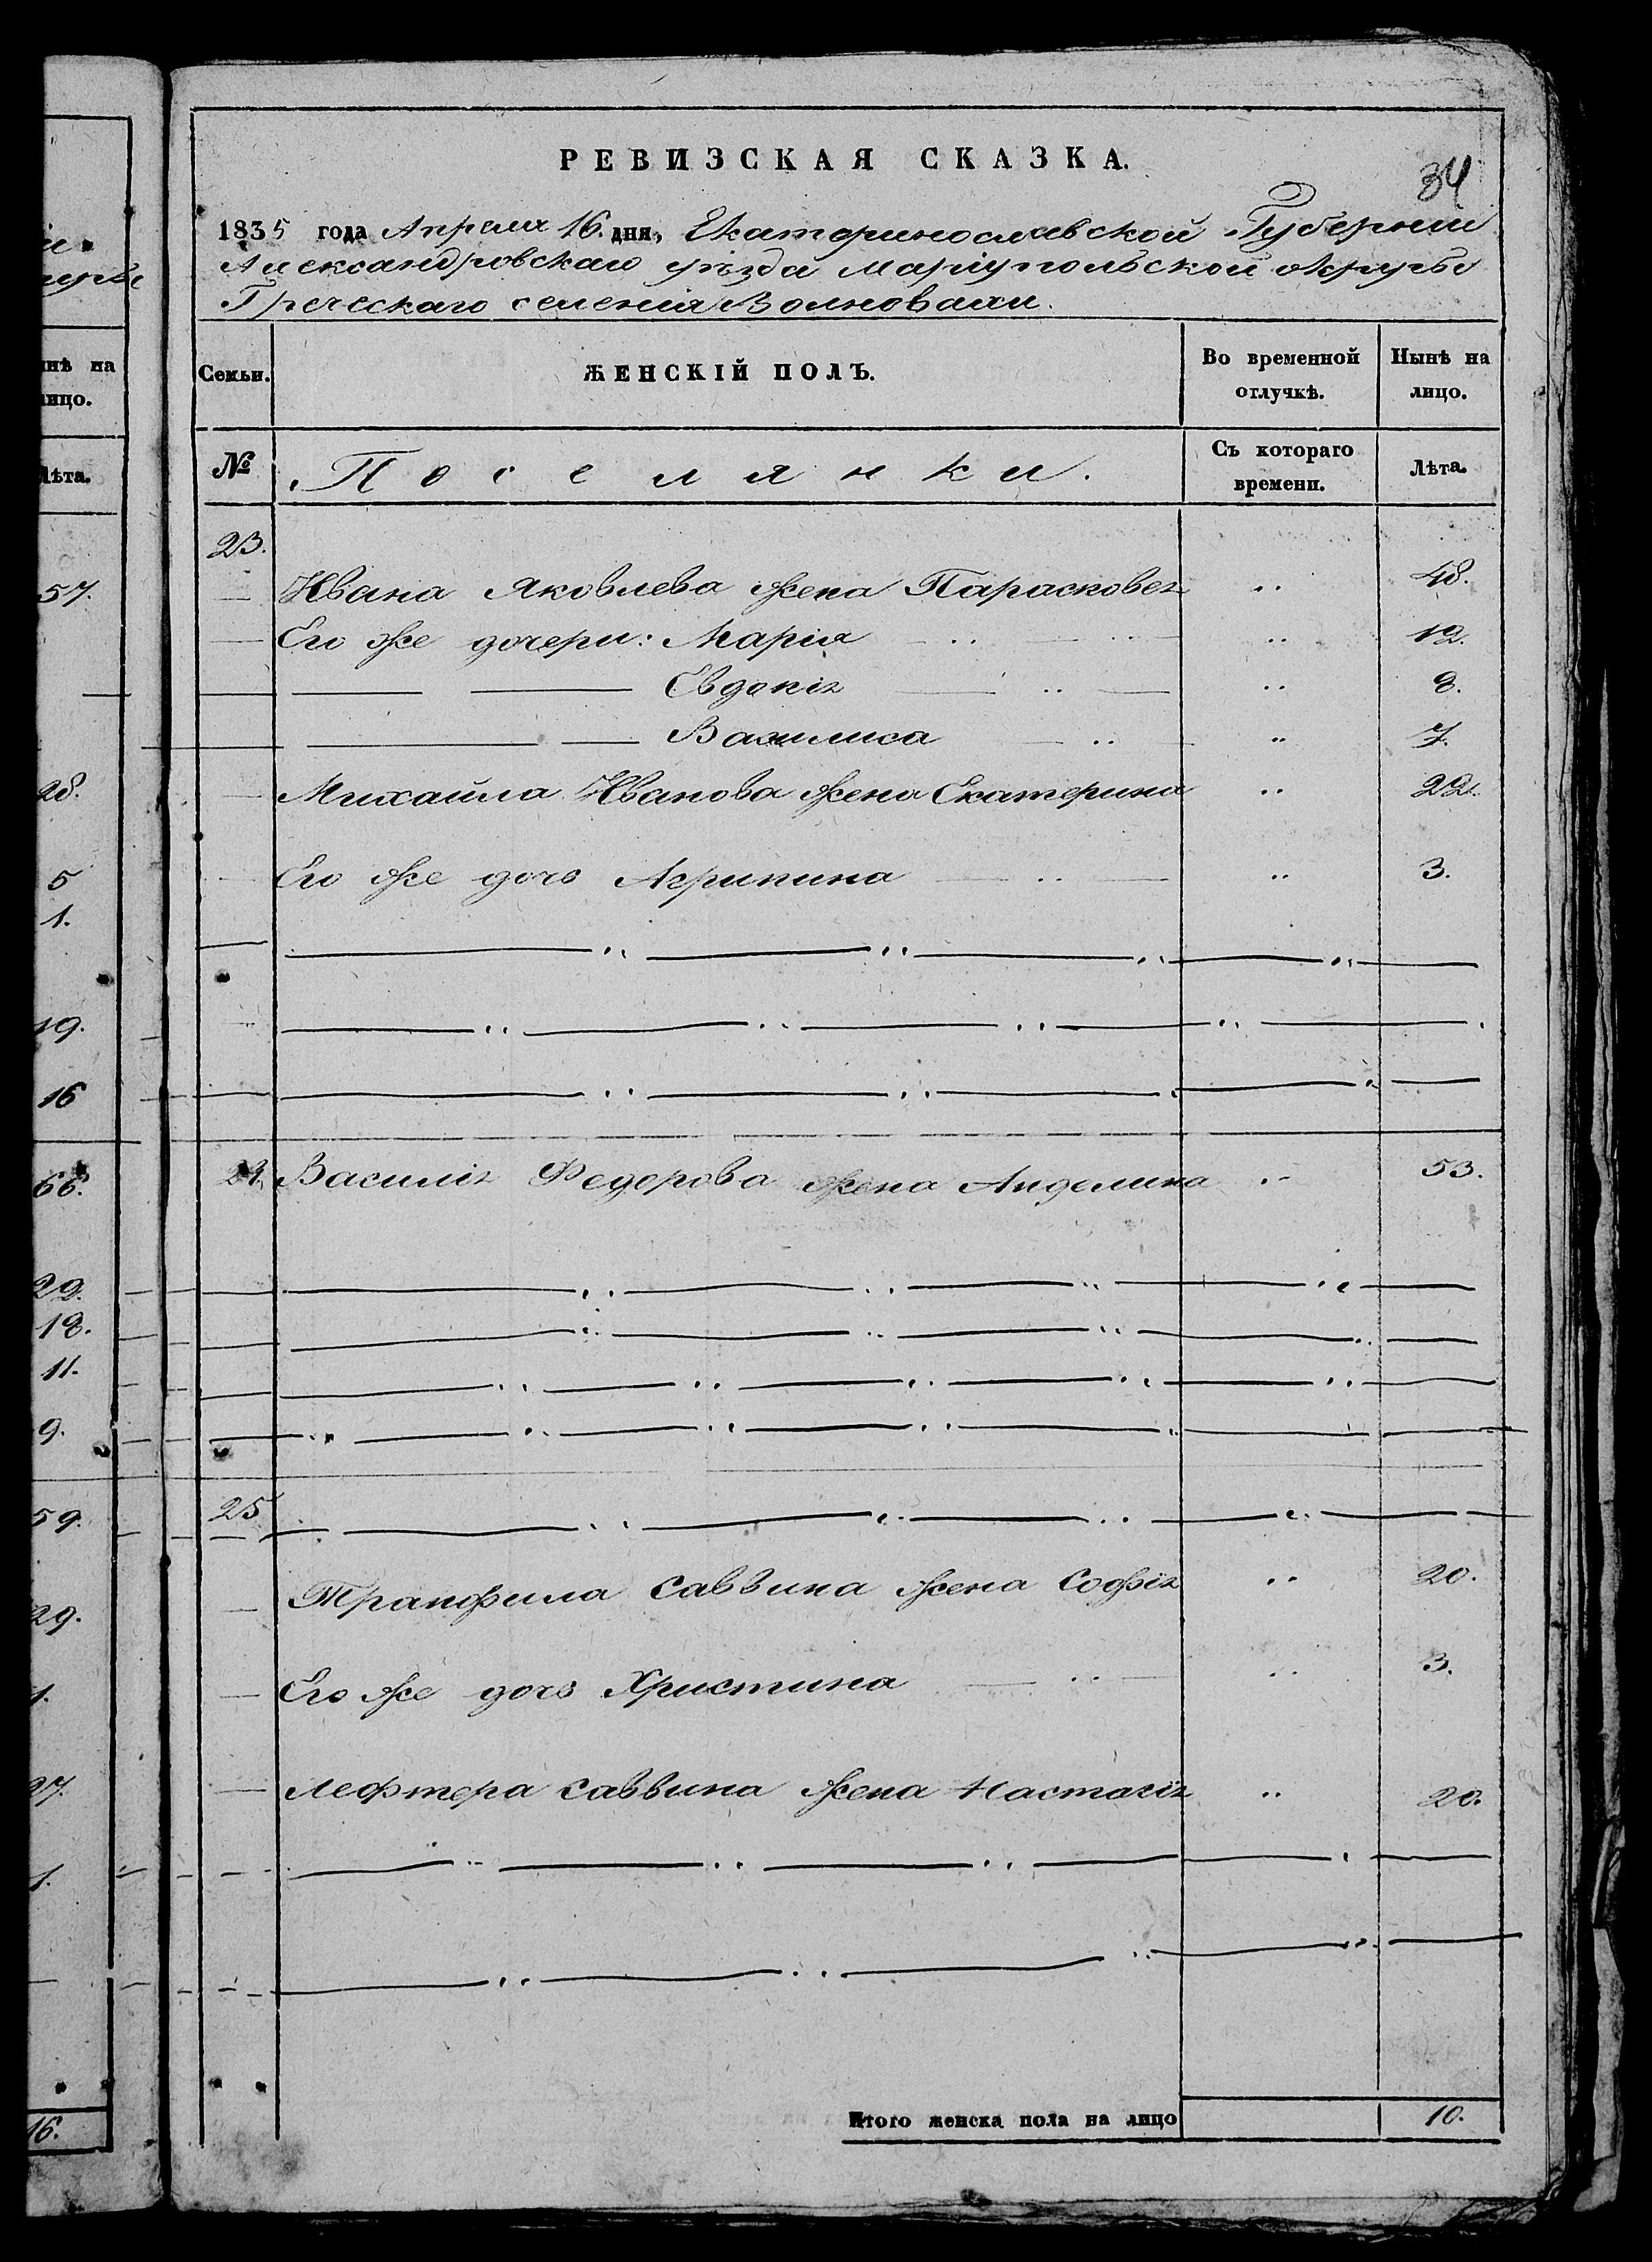 РЕВИЗСКАЯ СКАЗКА.
34
1835 года Апреля 16. дня, Екатеринославской Губерніи
Александровскаго уѣзда Маріупольской округи
Греческаго селенія Волновахи.
Семьи. ЖЕНСКІЙ ПОЛЪ. Во временной отлучкѣ. Нынѣ на лицо.
№ Поселянки. Съ котораго времени. Лѣта.
23.
Ивана Яковлева жена Парасковея 48.
Его же дочери: Марія 12.
Евдокія 8.
Василиса 7.
Михайла Иванова жена Екатерина 22.
Его же дочь Агрипина 3.
24. Василія Федорова жена Анделина 53.
25
Транфила Саввина жена Софія 20.
Его же дочь Христина 3.
Лефтера Саввина жена Настасія 20.
Итого женска пола на лицо 10.
нѣ на
лицо.
Лѣта.
57.
28.
5
1.
19.
16
66.
29.
18.
11.
9.
59.
29.
1.
27.
1.
16.